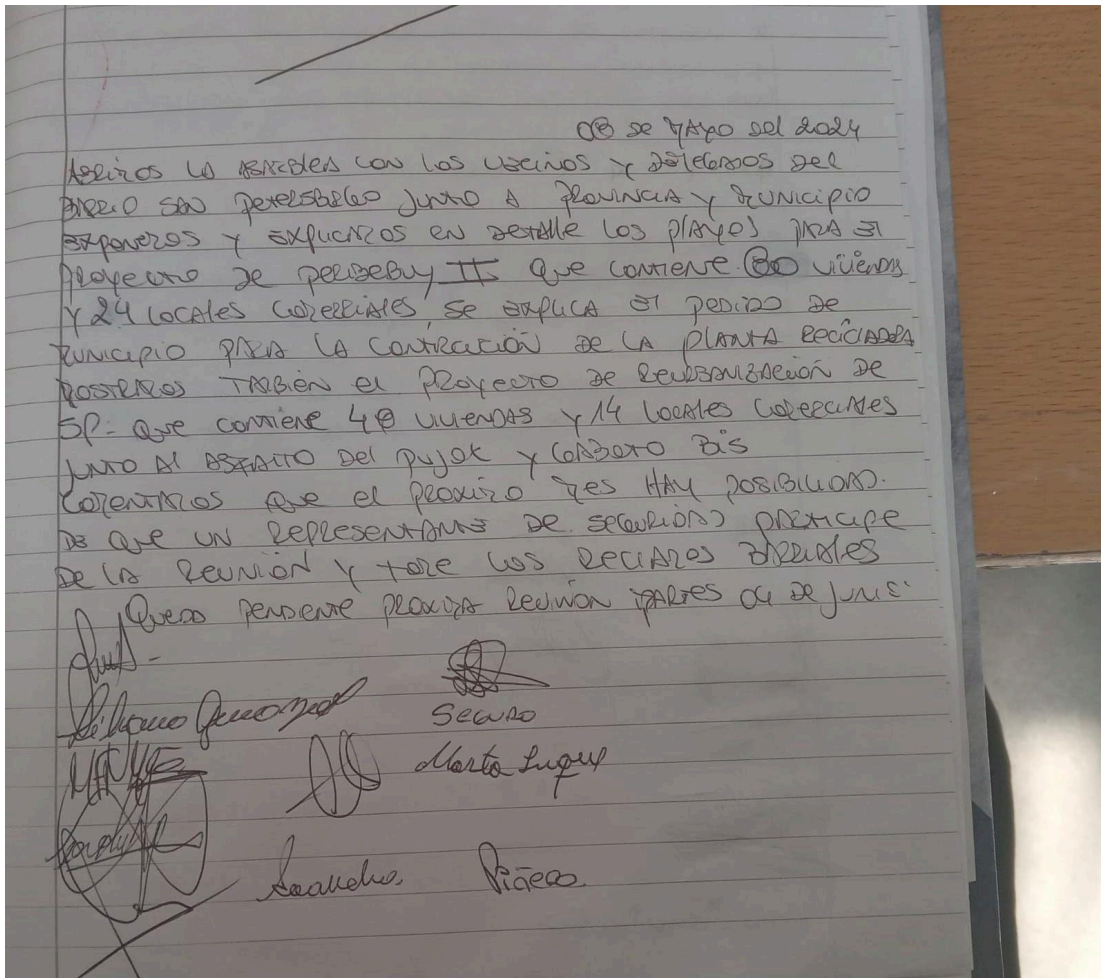 08 de Mayo del 2024
Abrimos la asamblea con los vecinos y delegados del
Barrio San Petersburgo junto a Provincia y Municipio
Exponemos y explicamos en detalle los planos para el
proyecto de Peribebuy II que contiene 80 viviendas
y 24 locales comerciales, se explica el pedido de
Municipio para la contración de la planta recicladora
Mostramos también el proyecto de Reurbanización de
SP- que contiene 48 viviendas y 14 locales comerciales
junto al asfalto del pujol y Gaboto Bis
Comentamos que el proximo mes hay posibilidad.
de que un representante de seguridad participe
de la reunión y tome los reclamos barriales
Quedo pendiente proxima reunión martes 04 de Junio.
Seguro
Marta Luque
Piñero